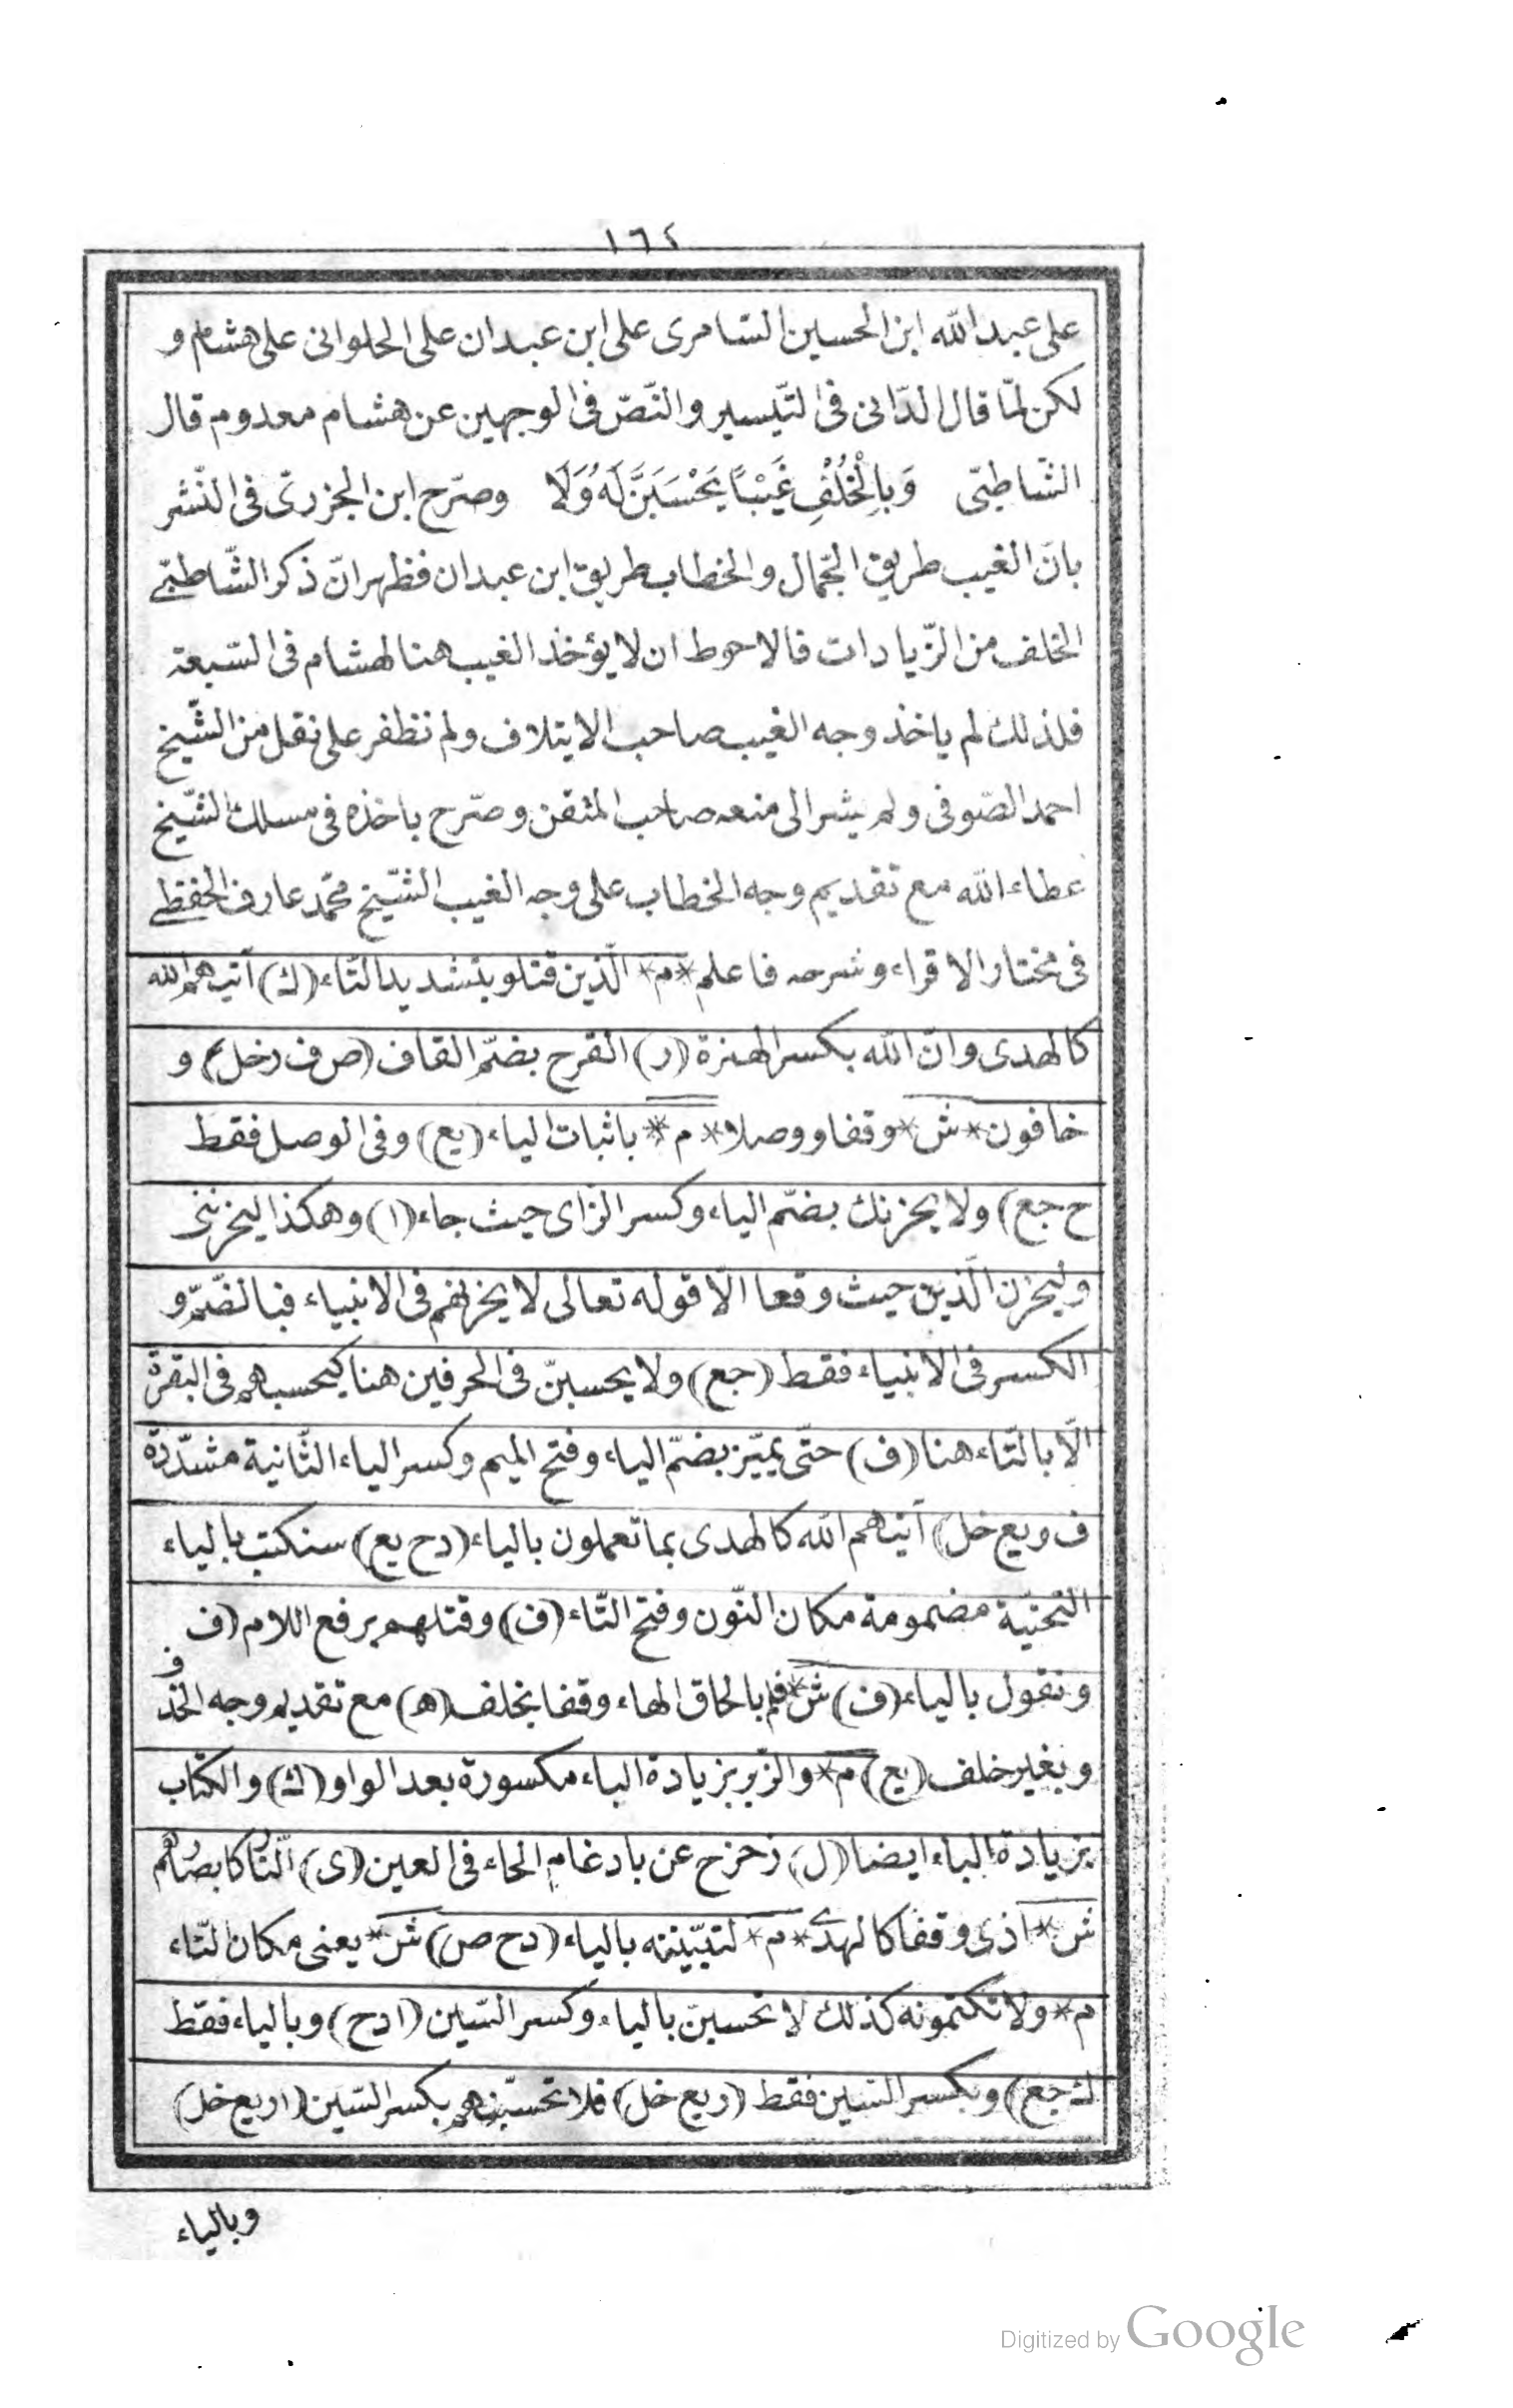 ١٦٤
على عبد الله ابن الحسين السّامرى على ابن عبدان على الحلوانى على هشام و
لكن لمّا قال الدّانى فى التّيسير والنّصّ فى الوجهين عن هشام معدوم قال
الشّاطبّى وَبِالْخُلْفِ غَيْبًا يَحْسَبَنَّ لَهُ وَلَا وصرّح ابن الجزرىّ فى النّشر
بانّ الغيب طريق الجّمال والخطاب طريق ابن عبدان فظهر انّ ذكر الشّاطبّى
الخلف من الزّيادات فالاحوط ان لا يؤخذ الغيب هنا لهشام فى السّبعة
فلذلك لم ياخذ وجه الغيب صاحب الايتلاف ولم نظفر على نقل من الشّيخ
احمد الصّوفى ولم يشر الى منعه صاحب المتقن وصرّح باخذه فى مسلك الشّيخ
عطاء الله مع تقديم وجه الخطاب على وجه الغيب الشّيخ محمّد عارف الحفظى
فى مختار الاقراء وشرحه فاعلم * م * الّذين قتلو بتشديد التّاء (ك) آتيهم الله
كالهدى وانّ الله بكسر الهمزة (ر) القرح بضمّ القاف (ص ف ر خل) و
خافون * ش * وقفا ووصلا * م * باثبات الياء (يع) وفى الوصل فقط
ح جع) ولا يحزنك بضمّ الياء وكسر الزّاى حيث جاء (ا) وهكذا ليحزننى
وليحزن الّذين حيث وقعا الّا قوله تعالى لا يحزنهم فى الانبياء فبالضّمّ و
الكسر فى الانبياء فقط (جع) ولا يحسبنّ فى الحرفين هنا كيحسبهم فى البقرة
الّا بالتّاء هنا (ف) حتّى يميّز بضمّ الياء وفتح الميم وكسر الياء الثّانية مشدّدة
ف ويع خل) آتيهم الله كالهدى بما تعملون بالياء (دح يع) سنكتب بالياء
التّحتيّة مضمومة مكان النّون وفتح التّاء (ف) وقتلهم برفع اللام (ف
ونقول بالياء (ف) ش * فلم بالحاق الهاء وقفا بخلف (ه) مع تقديم وجه الحذف
وبغير خلف (يع) م * والزّبر بزيادة الباء مكسورة بعد الواو (ك) والكتاب
بزيادة الباء ايضا (ل) زحزح عن بادغام الحاء فى العين (ى)
ش * اذى وقفا كالهدى * م * لتبيّننّه بالياء (دح ص) ش * يعنى مكان التّاء
م * ولا تكتمونه كذلك لا تحسبنّ بالياء وكسر السّين (ا دح) وبالياء فقط
ك جع) وبكسر السّين فقط (ر يع خل) فلا تحسبنّهم بكسر السّين (ا ر يع خل)
وبالياء
Digitized by Google